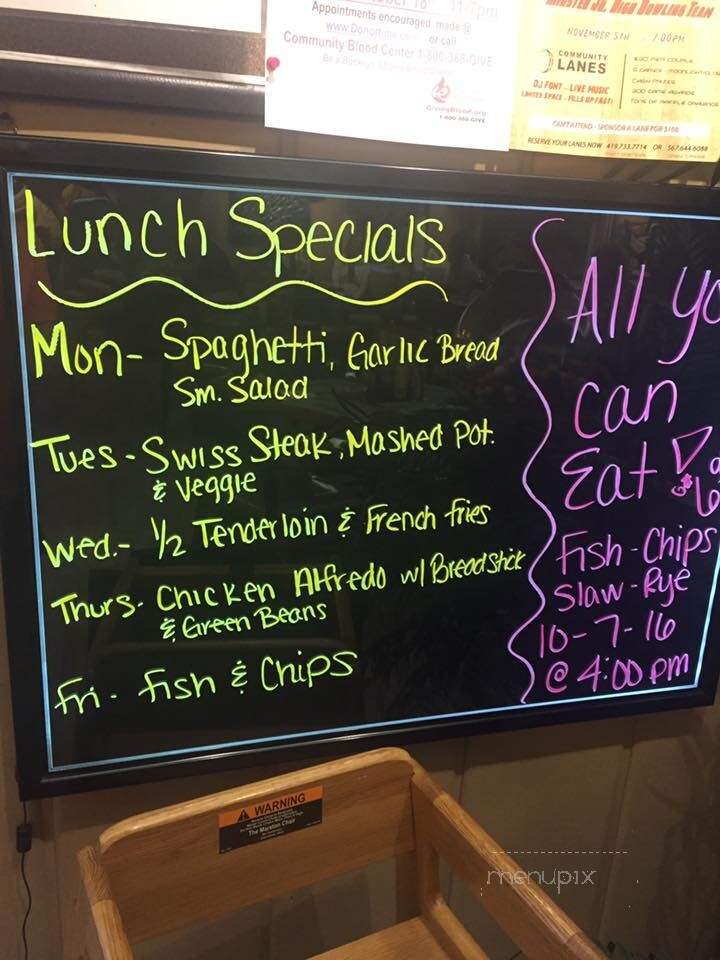 Appointments encouraged made @
or call
Community Blood Center 1-800-388-GIVE
GivingBlood.org
1-800-388-GIVE
NOVEMBER 5TH 7:00PM
COMMUNITY
LANES
DJ FONT - LIVE MUSIC
LIMITED SPACE - FILLS UP FAST!
CAN'T ATTEND - SPONSOR A LANE FOR $100
RESERVE YOUR LANES NOW 419.733.7714 OR 567.644.6088
Lunch Specials
Mon- Spaghetti, Garlic Bread
Sm. Salad
Tues - Swiss Steak, Mashed Pot.
& Veggie
Wed.- 1/2 Tenderloin & French fries
Thurs- Chicken Alfredo w/ Breadstick
& Green Beans
Fri - fish & Chips
All yo
can
Eat
Fish - Chips
Slaw - Rye
10-7-16
@ 4:00 pm
WARNING
The Marston Chair
menupix